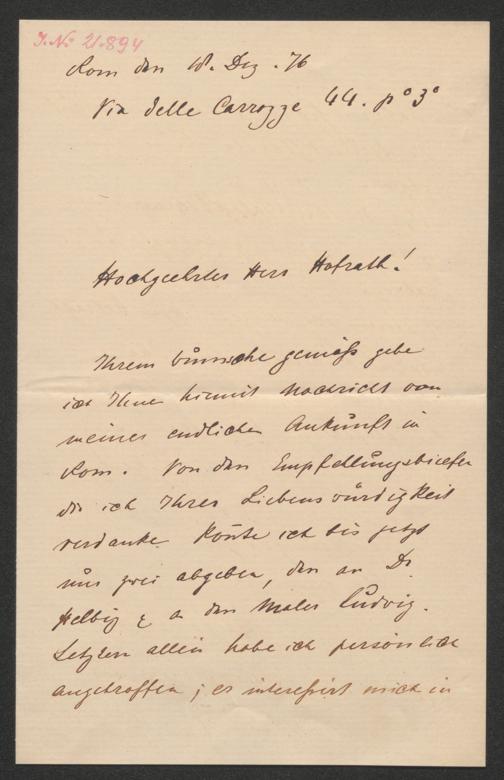 I. N. 21.894
Rom den 18. Dez. 76
Via delle Carrozze 44. p° 3°
Hochgeehrter Herr Hofrath!
Ihrem Wunsche gemäß gebe
ich Ihne hiemit Nachricht von
meiner endlichen Ankunft in
Rom. Von den Empfehlungsbriefen
die ich Ihrer Liebenswürdigkeit
verdanke konte ich bis jetzt
nur zwei abgeben, den an Dr
Helbig & an den Maler Ludwig.
Letztern allein habe ich persönlich
angetroffen; er interessirt mich in